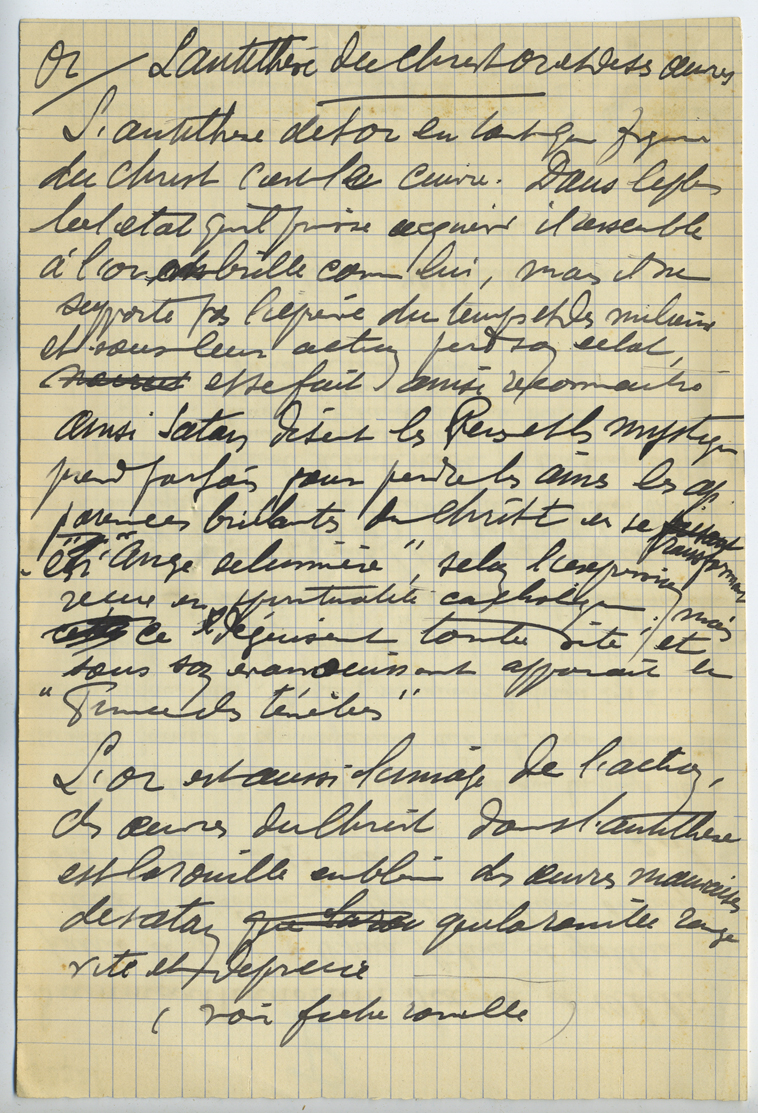 Or / L'antithèse du Christ or et de ses œuvres
L'antithèse de l'or en tant que figure
du Christ c'est le cuivre. Dans le plus
bel état qu'il puisse acquérir il ressemble
à l'or, brille comme lui, mais il ne
supporte pas l'épreuve du temps et des milieux
et sous leur action perd son éclat,
et se fait ainsi reconnaître
ainsi Satan disent les Pères et les mystiques
prend parfois pour perdre les âmes les ap
parences brillantes du Christ en se transformant
en "Ange de lumière", selon l'expression
reçue en spiritualité catholique, mais
ce déguisement tombe vite et
sous son évanouissement apparaît le
"Prince des ténèbres"
L'or est aussi l'image de l'action,
des œuvres du Christ dont l'antithèse
est la rouille emblème des œuvres mauvaises
de Satan que la rouille ronge
vite et déprécie
(voir fiche rouille)